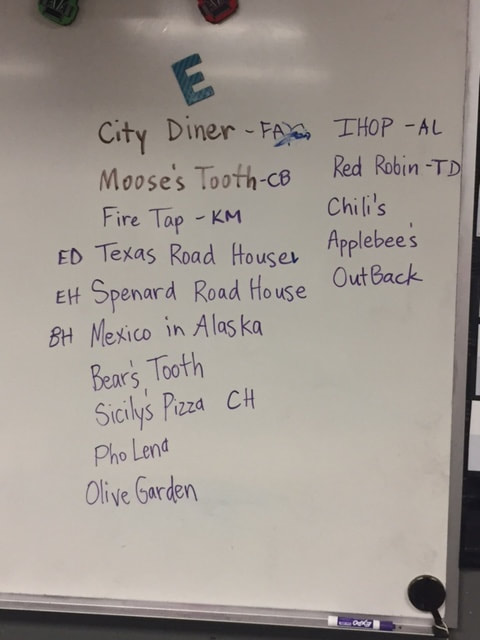 E
City Diner - FA
Moose's Tooth-CB
Fire Tap - KM
ED Texas Road House
EH Spenard Road House
BH Mexico in Alaska
Bear's Tooth
Sicily's Pizza CH
Pho Lena
Olive Garden
IHOP - AL
Red Robin - TD
Chili's
Applebee's
OutBack
EXPO